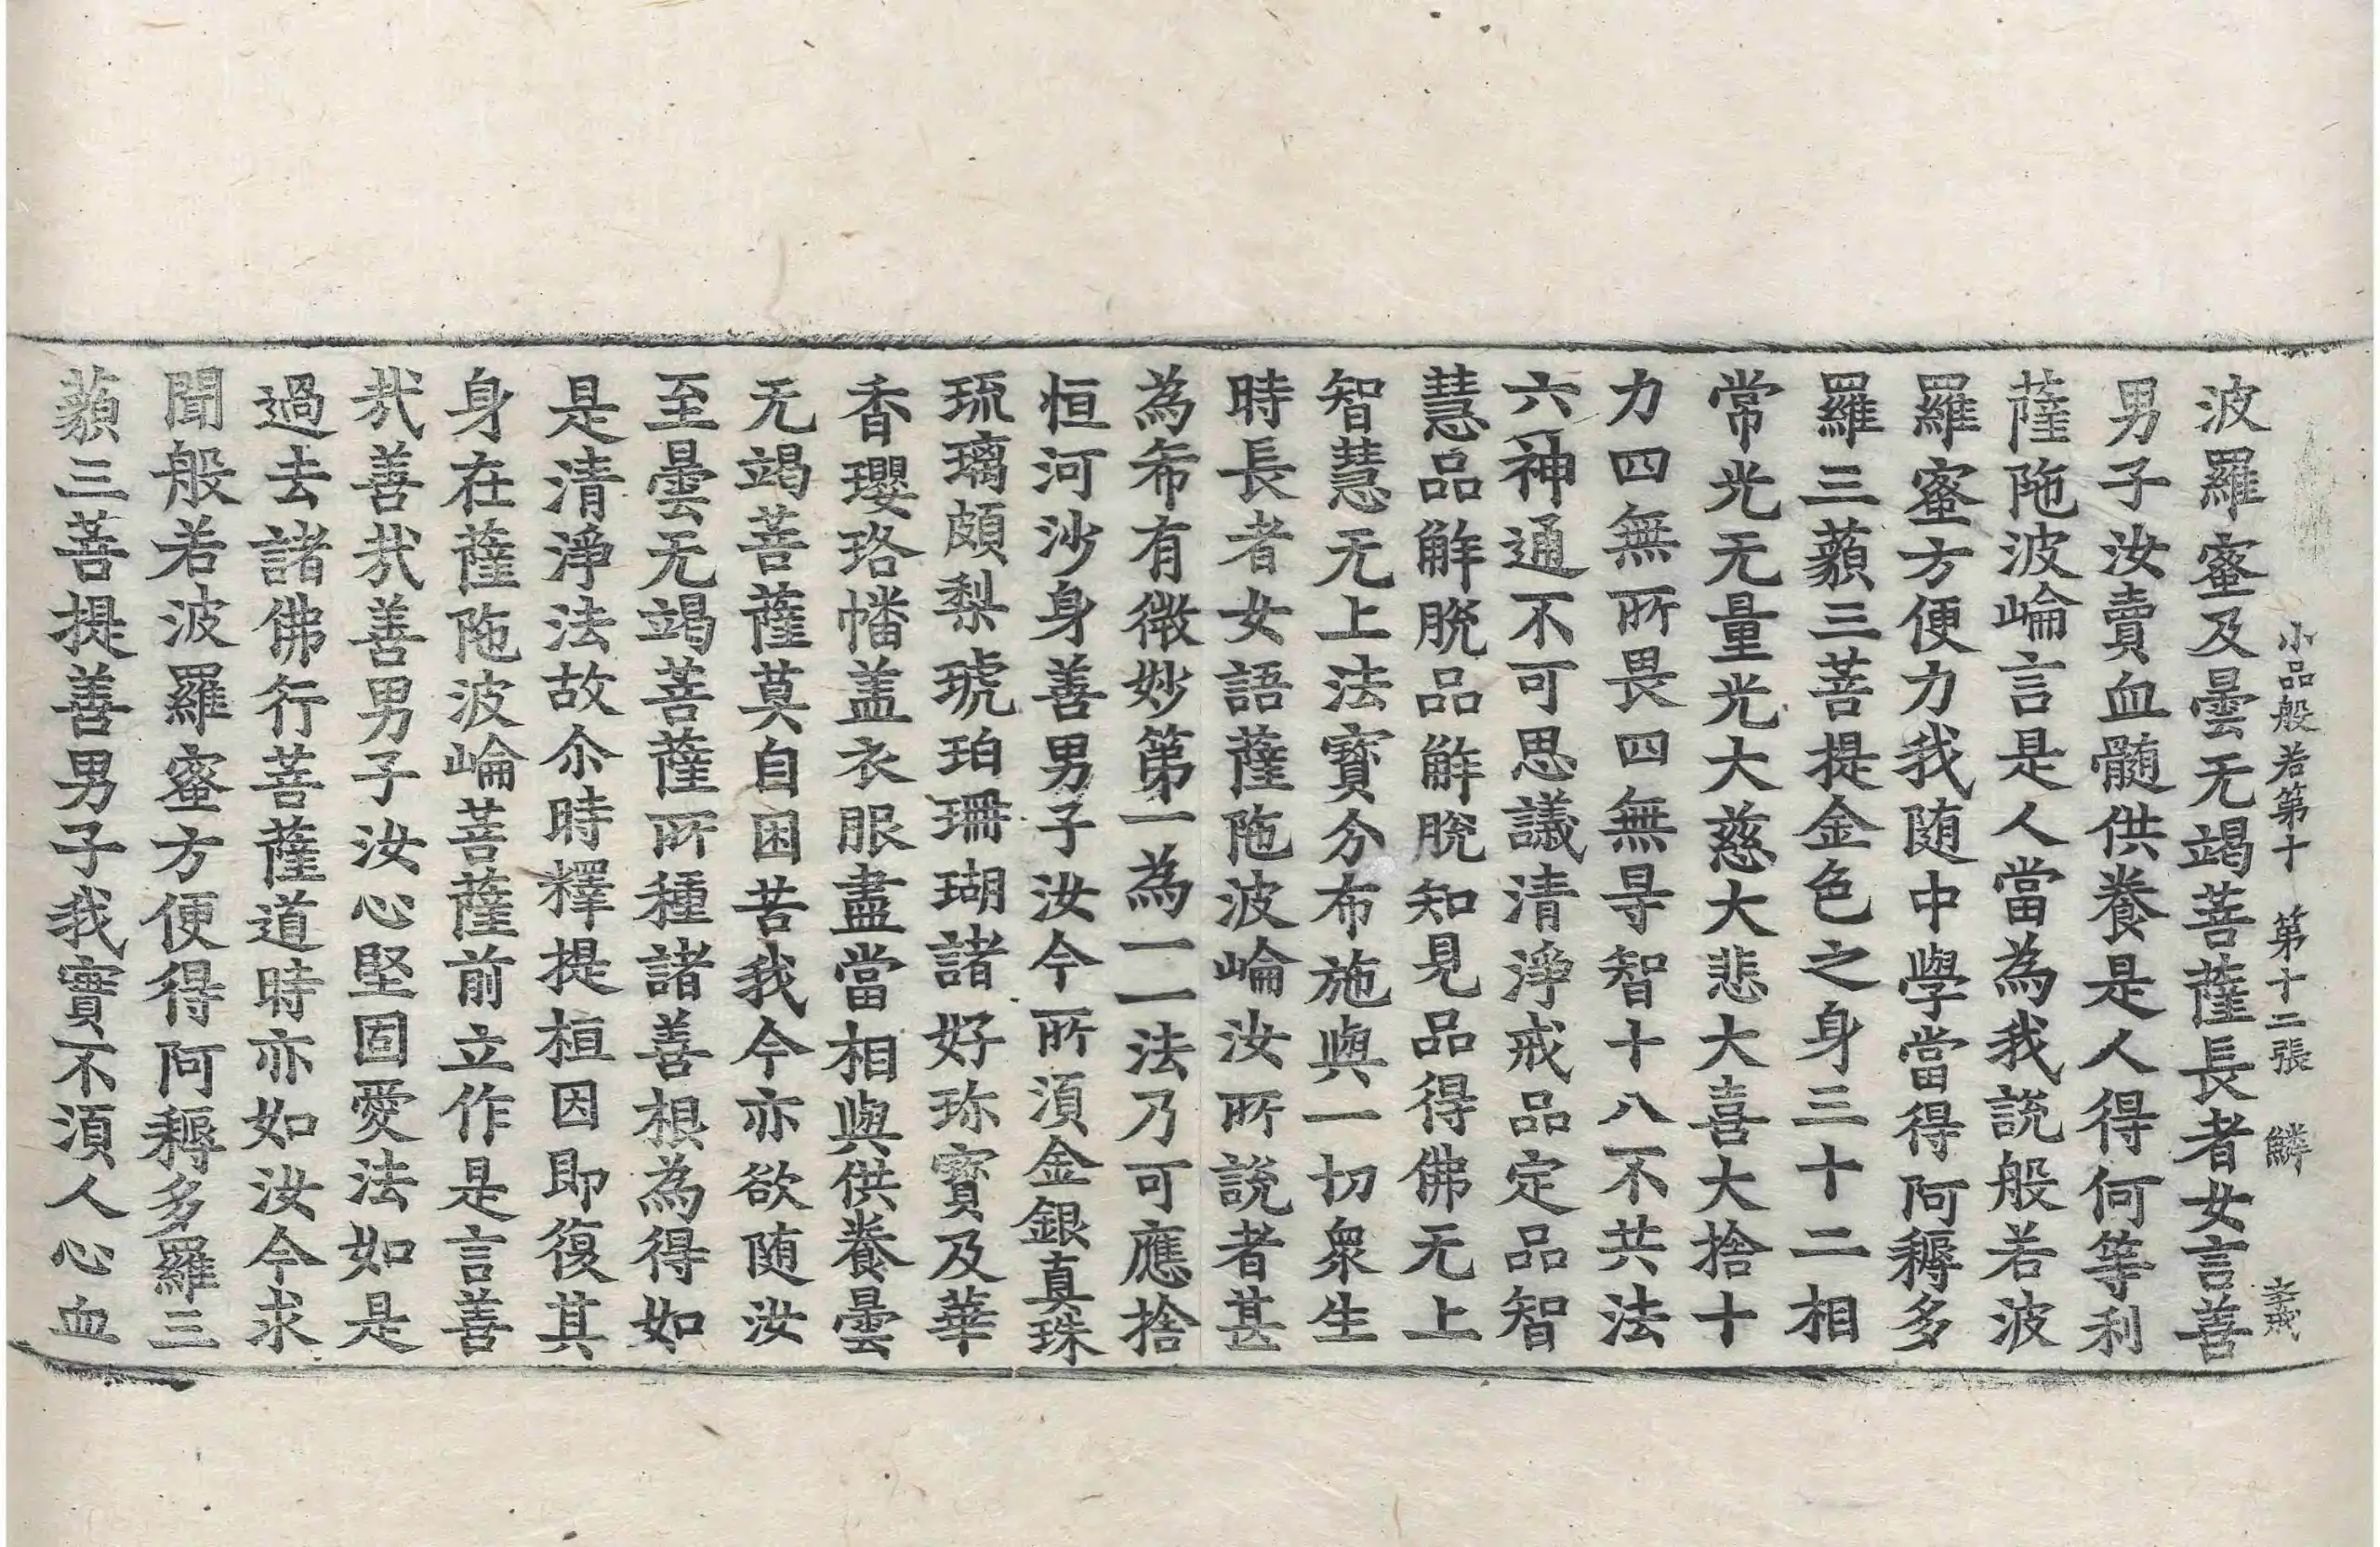 小品般若第十　第十二張　鱗
波羅蜜及曇无竭菩薩長者女言善
男子汝賣血髓供養是人得何等利
薩陁波崘言是人當為我説般若波
羅蜜方便力我随中學當得阿耨多
羅三藐三菩提金色之身三十二相
常光无量光大慈大悲大喜大捨十
力四無所畏四無㝵智十八不共法
六神通不可思議清淨戒品定品智
慧品解脫品解脫知見品得佛无上
智慧无上法寳分布施與一切衆生
時長者女語薩陁波崘汝所説者甚
為希有微妙第一為一一法乃可應捨
恒河沙身善男子汝今所湏金銀真珠
琉璃頗梨琥珀珊瑚諸好珎寳及華
香瓔珞幡盖衣服盡當相與供養曇
无竭菩薩莫自困苦我今亦欲随汝
至曇无竭菩薩所種諸善根為得如
是清淨法故尒時釋提桓因即復其
身在薩陁波崘菩薩前立作是言善
㢤善㢤善男子汝心堅固愛法如是
過去諸佛行菩薩道時亦如汝今求
聞般若波羅蜜方便得阿耨多羅三
藐三菩提善男子我實不湏人心血